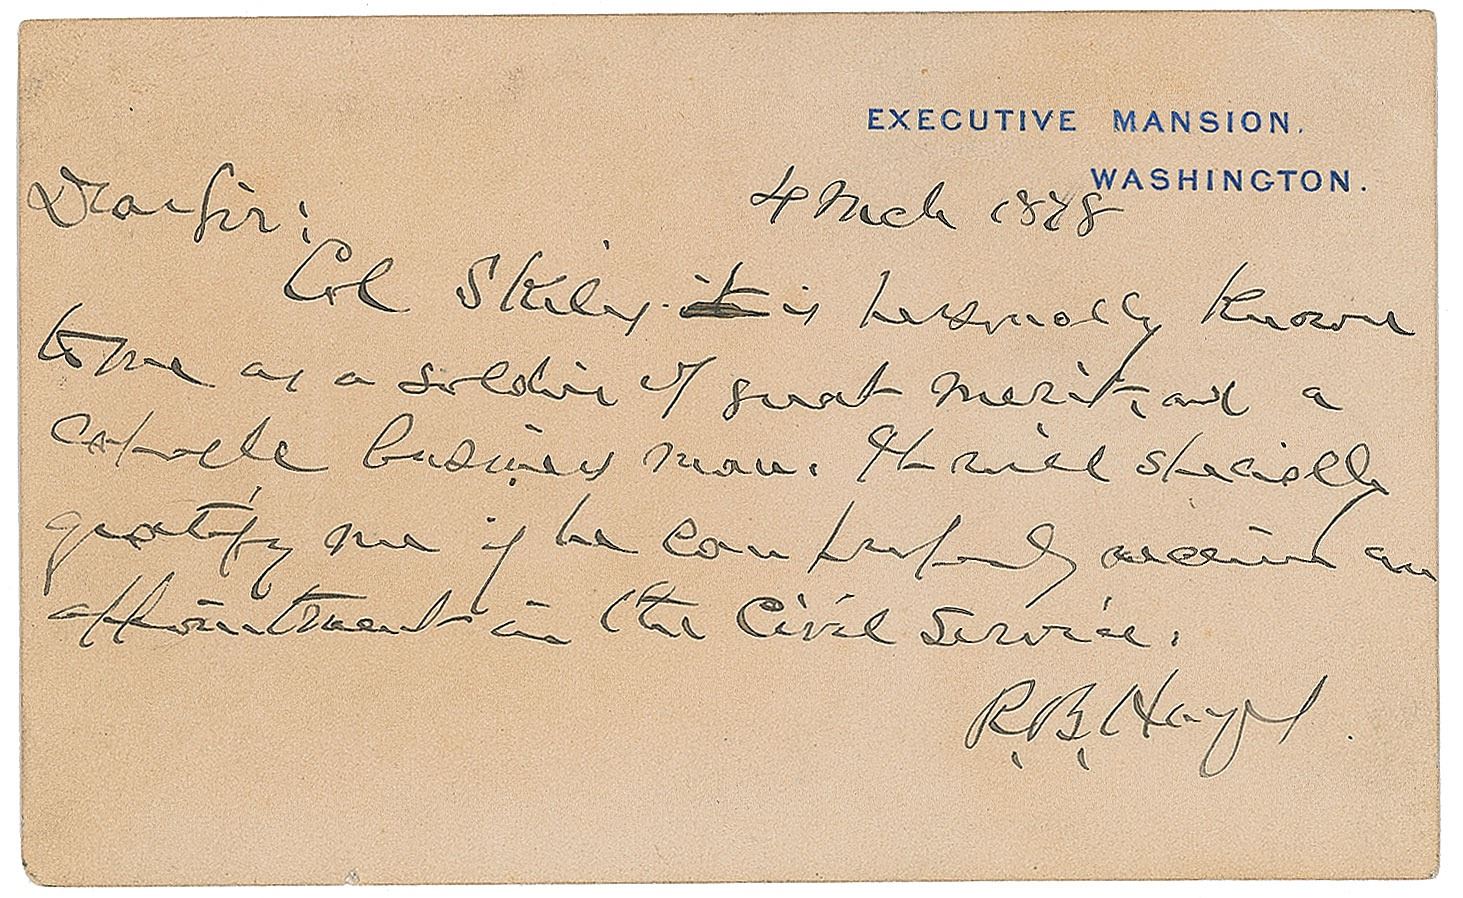 EXECUTIVE MANSION.
WASHINGTON.
4 Mch 1878
Dear Sir:
Col is personally known
to me as a soldier of great merit, and a
capable business man. It will specially
gratify me if he can properly receive an
appointment in the Civil Service.
R. B. Hayes